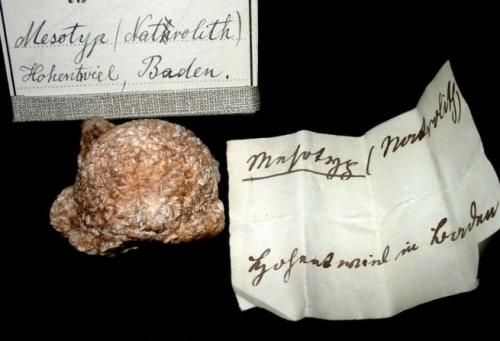 Mesotyp (Natrolith)
Hohentwiel, Baden.
Mesotyp (Natrolith)
Hohentwiel in Baden